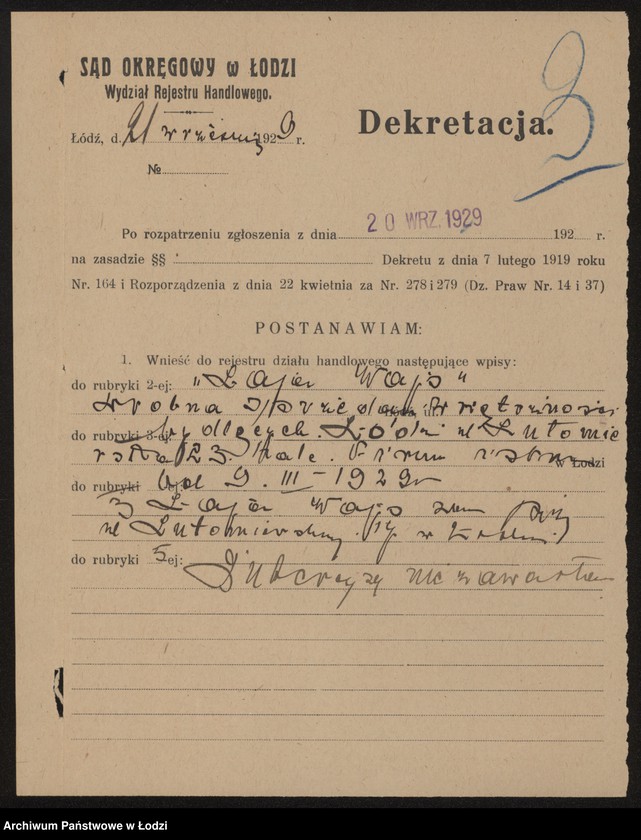 3
SĄD OKRĘGOWY w ŁODZI
Wydział Rejestru Handlowego.
Łódź, d. 21 września 1929 r.
Dekretacja.
№
Po rozpatrzeniu zgłoszenia z dnia 20 WRZ. 1929 192 r.
na zasadzie §§ Dekretu z dnia 7 lutego 1919 roku
Nr. 164 i Rozporządzenia z dnia 22 kwietnia za Nr. 278 i 279 (Dz. Praw Nr. 14 i 37)
POSTANAWIAM:
1. Wnieść do rejestru działu handlowego następujące wpisy:
do rubryki 2-ej: "Łajer Wajs"
drobna sprzedaż wnętrzności
do rubryki 3-ej: bydlęcych. Łódź ul Lutomie
rska 23. Firma istn. w Łodzi
do rubryki ej: od 9. III-1929
3) Łajer Wajs zam.
ul Lutomierskiej w Łodzi.
do rubryki 5ej: Intercyzy nie zawarł
Archiwum Państwowe w Łodzi